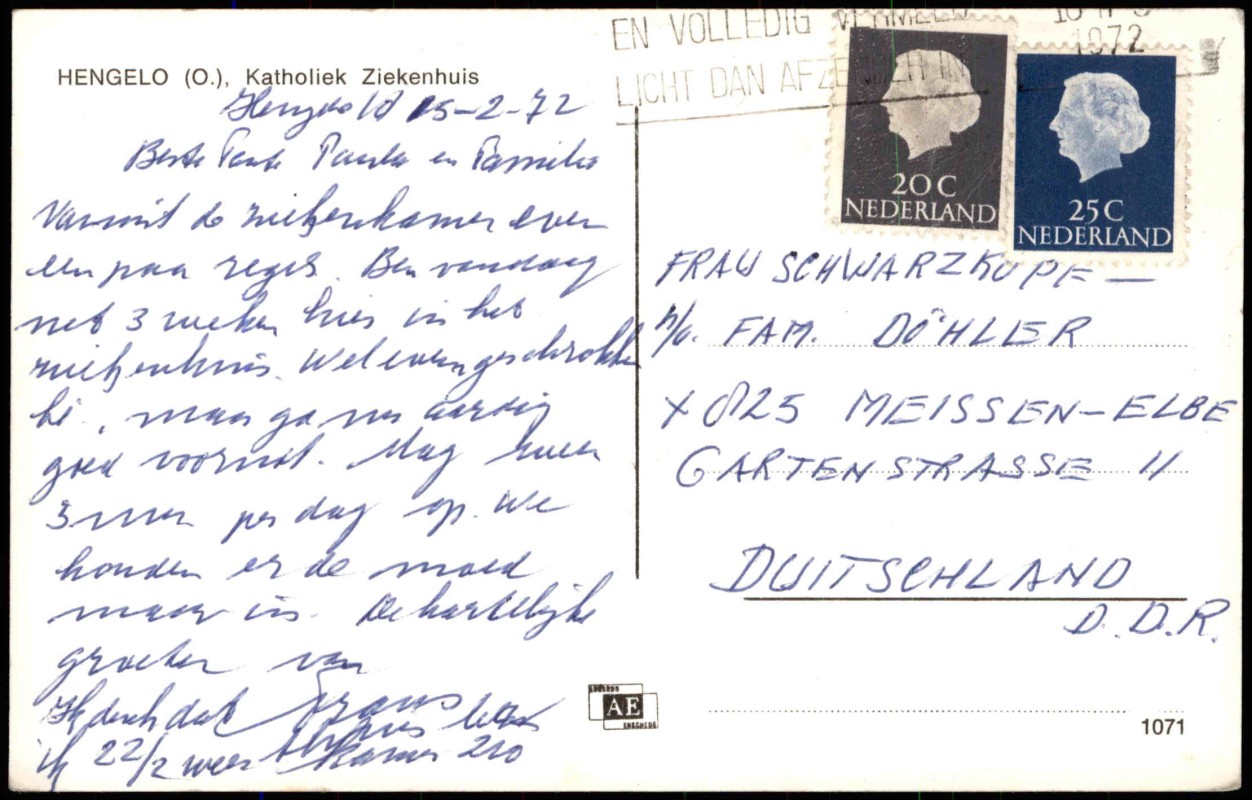 HENGELO (O.), Katholiek Ziekenhuis
Hengelo 15-2-72
Beste Tante Paula en Familie
Vanuit de ziekenkamer even
een paar regels. Ben vandaag
net 3 weken hier in het
ziekenhuis. Wel even geschrokken
hè, maar ga nu aardig
goed vooruit. Mag weer
3 uur per dag op. We
houden er de moed
maar in. De hartelijke
groeten van
Frans
Ik denk dat
ik 22/2 weer thuis ben
kamer 210
EN VOLLEDIG VERMELD
LICHT DAN AFZENDER IN
1972
20 C
NEDERLAND
25 C
NEDERLAND
FRAU SCHWARZKOPF —
p/a. FAM. DÖHLER
X 825 MEISSEN-ELBE
GARTENSTRASSE 11
DUITSCHLAND
D.D.R.
AE
ENSCHEDE
1071